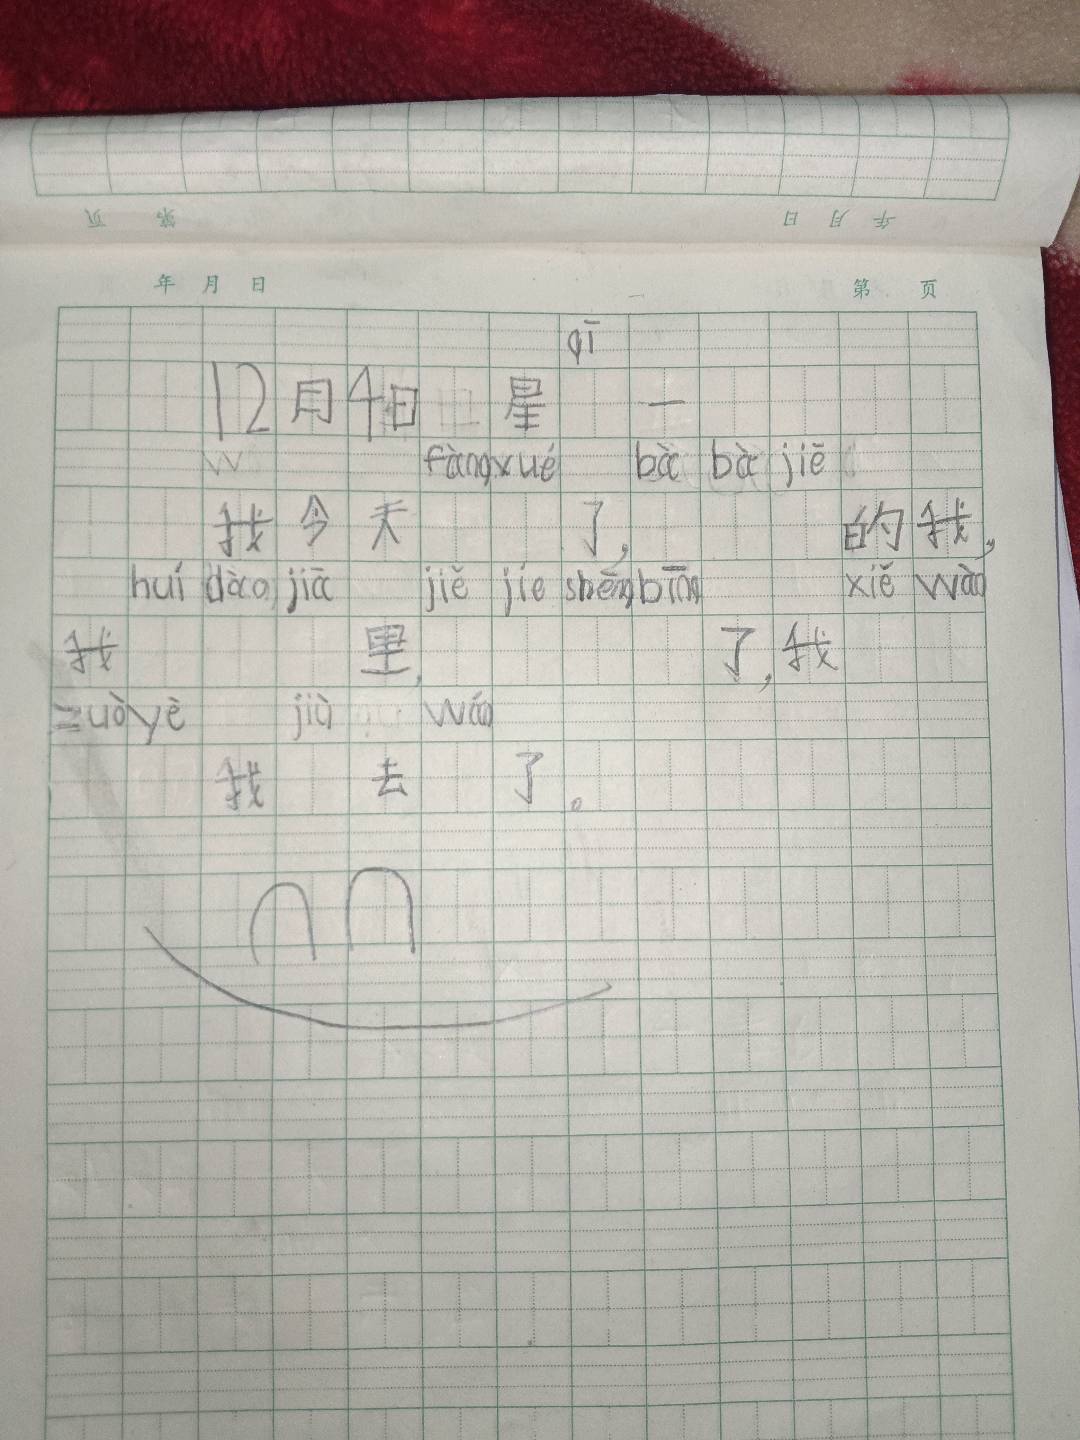 页 第 日 月 年
年 月 日 第 页
qī
12月4日 星 一
fàngxué bà bà jiē
我今天 了, 的我,
huí dào jiā jiě jie shēngbīng xiě wào
我 里, 了,我
zuòyè jiù wáo
我 去 了。